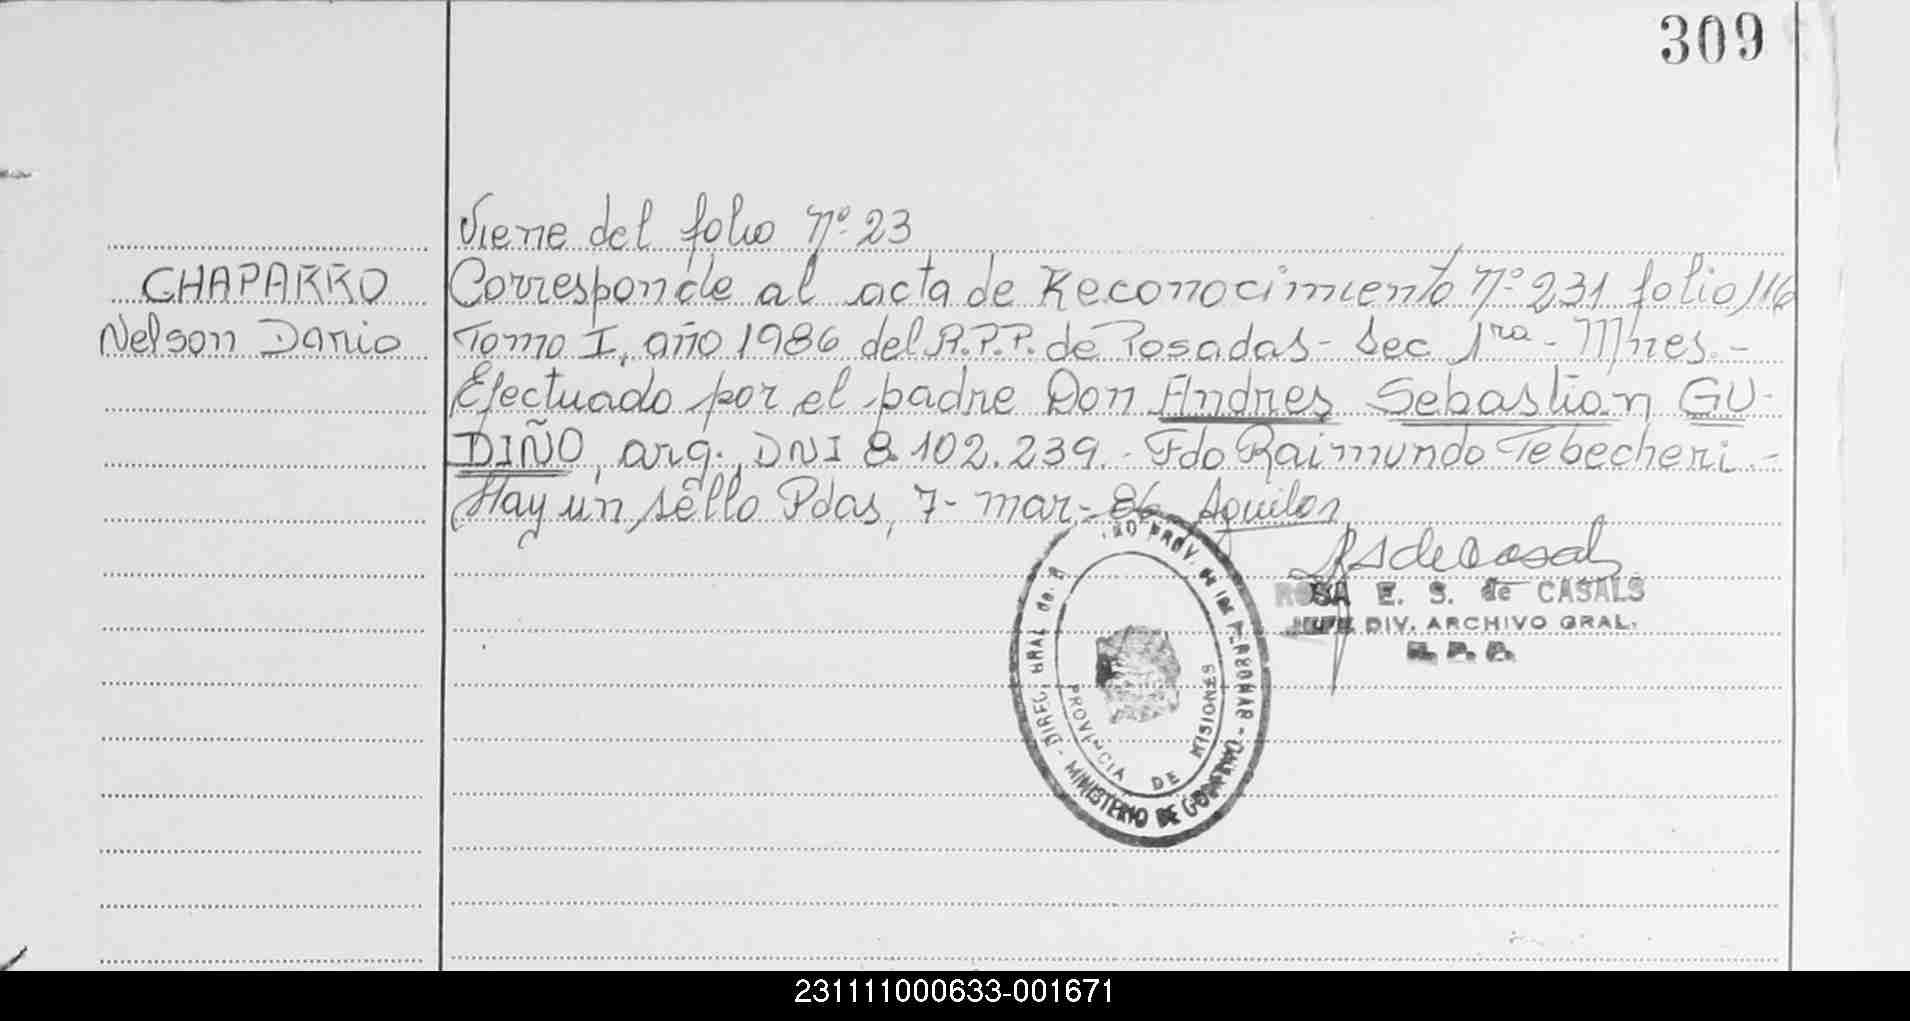 309
Viene del folio Nº 23
CHAPARRO
Nelson Dario
Corresponde al acta de Reconocimiento Nº 231 folio 116
Tomo I, año 1986 del R.P.P. de Posadas - Sec 1ra - Mnes. -
Efectuado por el padre Don Andres Sebastian GU-
DIÑO, arg., DNI 8.102.239. - Fdo Raimundo Tebecheri. -
Hay un sello Pdas, 7 - mar - 86
ROSA E. S. de CASALS
JEFE DIV. ARCHIVO GRAL.
R. P. P.
PROV. de las PERSONAS - DIREC. GRAL de
MINISTERIO DE GOBIERNO
PROVINCIA DE MISIONES
231111000633-001671